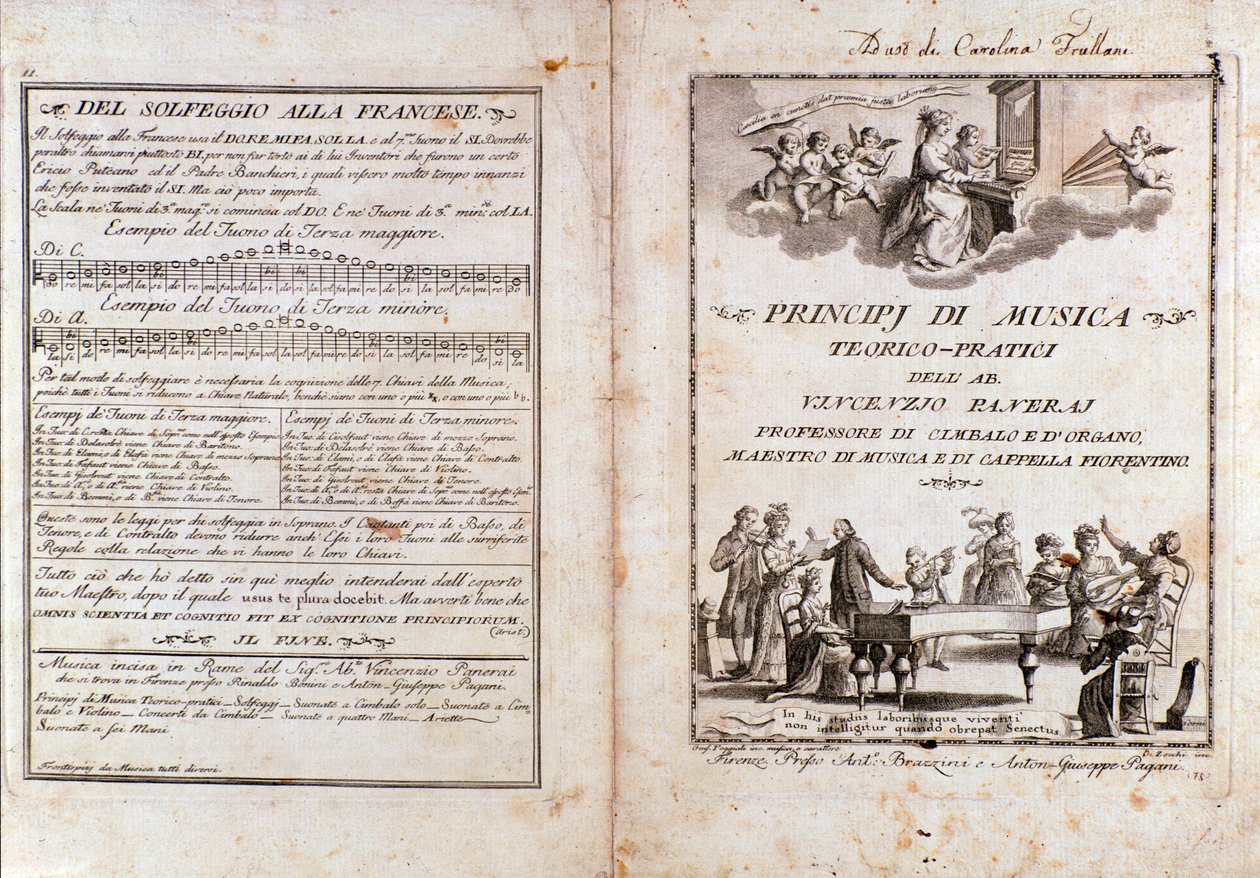 11.
DEL SOLFEGGIO ALLA FRANCESE.
Il Solfeggio alla Francese usa il DO.RE.MI.FA.SOL.LA. e al 7.mo Tuono il SI. Dovrebbe
peraltro chiamarsi piuttosto BI, per non far torto ai di lui Inventori che furono un certo
Ericio Puteano ed il Padre Banchieri, i quali vissero molto tempo innanzi
che fosse inventato il SI. Ma ciò poco importa.
La Scala ne' Tuoni di 3.a mag.re si comincia col DO. E ne' Tuoni di 3.a min.re col LA.
Esempio del Tuono di Terza maggiore.
Di C.
do re mi fa sol la si do re mi fa sol la si do si la sol fa mi re do si la sol fa mi re do
Esempio del Tuono di Terza minore.
Di A.
la si do re mi fa sol la si do re mi fa sol la sol fa mi re do si la sol fa mi re do si la
Per tal modo di solfeggiare è necessaria la cognizione delle 7. Chiavi della Musica;
poichè tutti i Tuoni si riducono a Chiave Naturale, benchè siano con uno o più #, o con uno o più b b.
Esempj de' Tuoni di Terza maggiore.
In Tuo: di C. resta Chiave di Sopr.no come nell' esposto Esempio
In Tuo: di Delasolrè viene Chiave di Baritono.
In Tuo: di Elamì, o di Elafà viene Chiave di mezzo Soprano
In Tuo: di Fafaut viene Chiave di Basso.
In Tuo: di Gsolreut viene Chiave di Contralto.
In Tuo: di A.re e di A. viene Chiave di Violino.
In Tuo: di Bemmì, o di B.fà viene Chiave di Tenore.
Esempj de' Tuoni di Terza minore.
In Tuo: di Csolfaut viene Chiave di mezzo Soprano.
In Tuo: di Delasolrè viene Chiave di Basso.
In Tuo: di Elamì, o di Elafà viene Chiave di Contralto.
In Tuo: di Fafaut viene Chiave di Violino.
In Tuo: di Gsolreut viene Chiave di Tenore.
In Tuo: di A.re e di A. resta Chiave di Sopr.no come nell' esposto
In Tuo: di Bemmì, o di Beffà viene Chiave di Baritono.
Queste sono le leggi per chi solfeggia in Soprano. I Cantanti poi di Basso, di
Tenore, e di Contralto devono ridurre anch' Essi i loro Tuoni alle surriferite
Regole colla relazione che vi hanno le loro Chiavi.
Tutto ciò che hò detto sin quì meglio intenderai dall' esperto
tuo Maestro, dopo il quale usus te plura docebit. Ma avverti bene che
OMNIS SCIENTIA ET COGNITIO FIT EX COGNITIONE PRINCIPIORUM.
(Arist.)
IL FINE.
Musica incisa in Rame del Sig.r Ab.e Vincenzio Panerai
che si trova in Firenze presso Rinaldo Bonini e Anton-Giuseppe Pagani.
Principj di Musica Teorico-pratici _ Solfeggj _ Suonate a Cimbalo solo _ Suonate a Cim=
balo e Violino _ Concerti da Cimbalo _ Suonate a quattro Mani _ Ariette
Suonate a sei Mani
Frontispizj da Musica tutti diversi.
Ad uso di Carolina Frullani
Cæcilia en cunctis dat præmia justa laborum
PRINCIPJ DI MUSICA
TEORICO-PRATICI
DELL' AB.
VINCENZIO PANERAJ
PROFESSORE DI CIMBALO E D' ORGANO,
MAESTRO DI MUSICA E DI CAPPELLA FIORENTINO.
In his studiis laboribusque viventi
non intelligitur quando obrepat Senectus.
Gius. Poggiali inc. musica, e carattere
B. Zochi inc.
Firenze. Presso Ant.o Brazzini e Anton-Giuseppe Pagani.